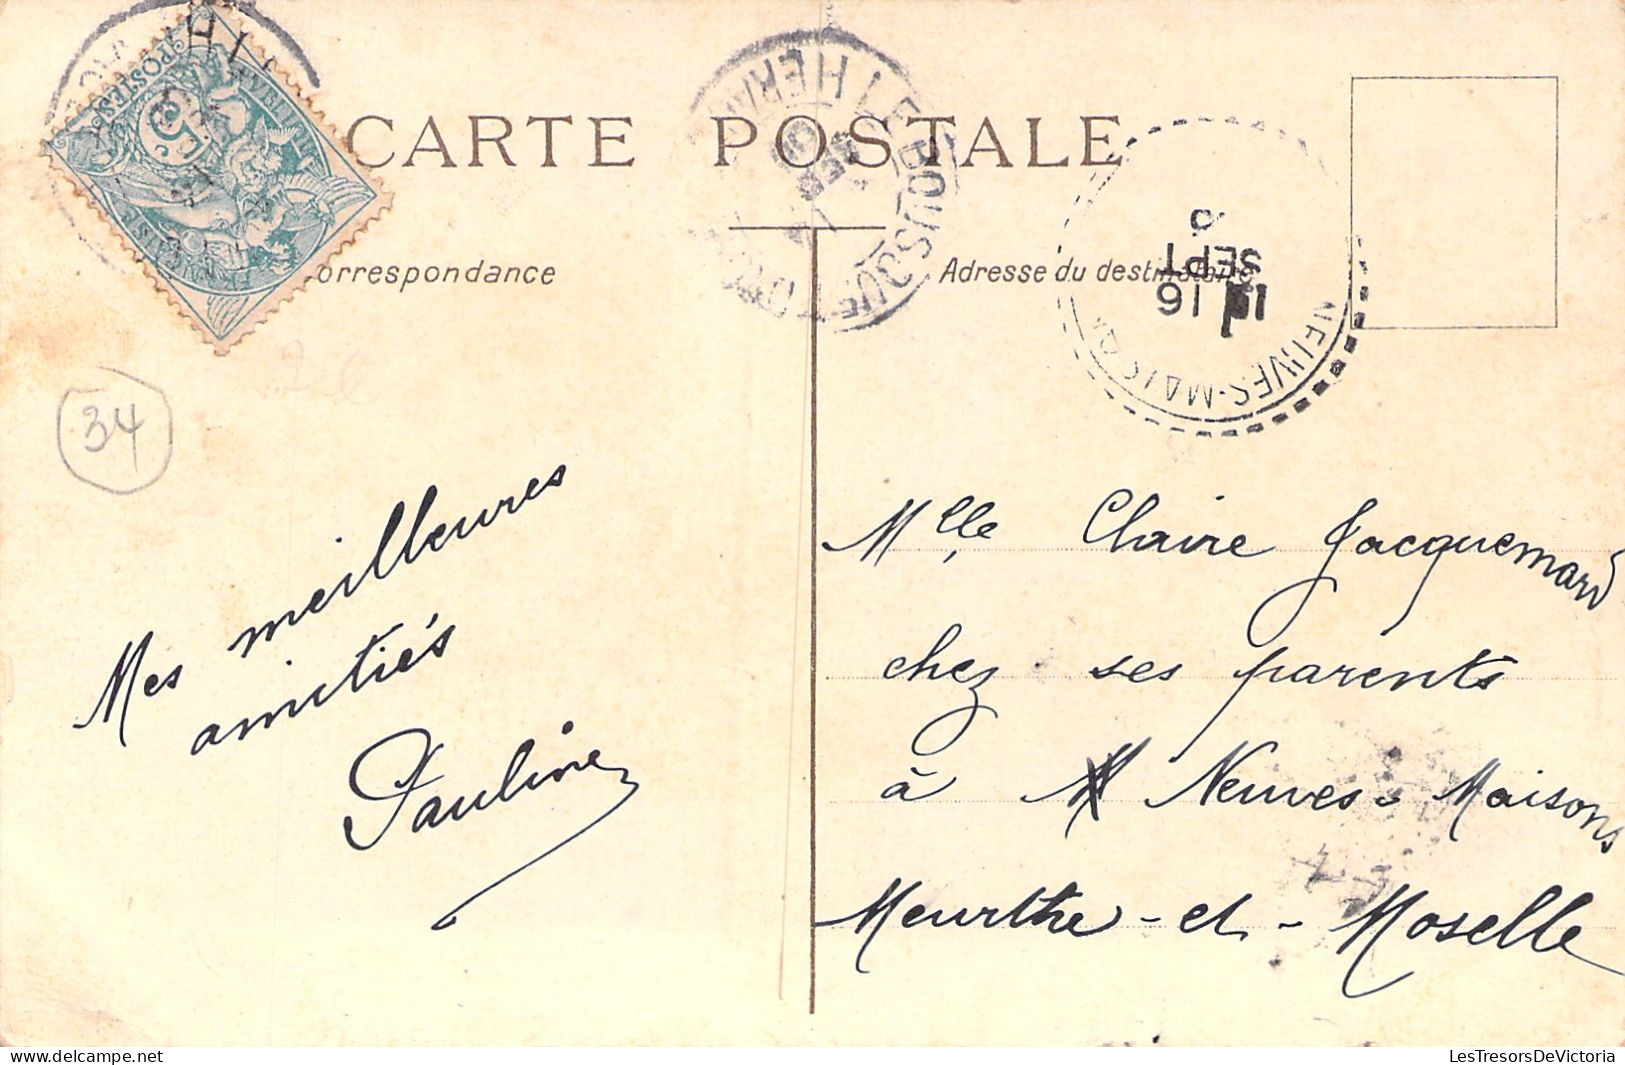 CARTE POSTALE
orrespondance
Adresse du destinataire
POSTES
5c
LE BOUSQUET D'ORB
HERAULT
SEPT
NEUVES-MAISONS
16
SEPT
34
Mes meilleures
amitiés
Pauline
Mlle Claire Jacquemard
chez ses parents
à Neuves-Maisons
Meurthe-et-Moselle
LesTresorsDeVictoria